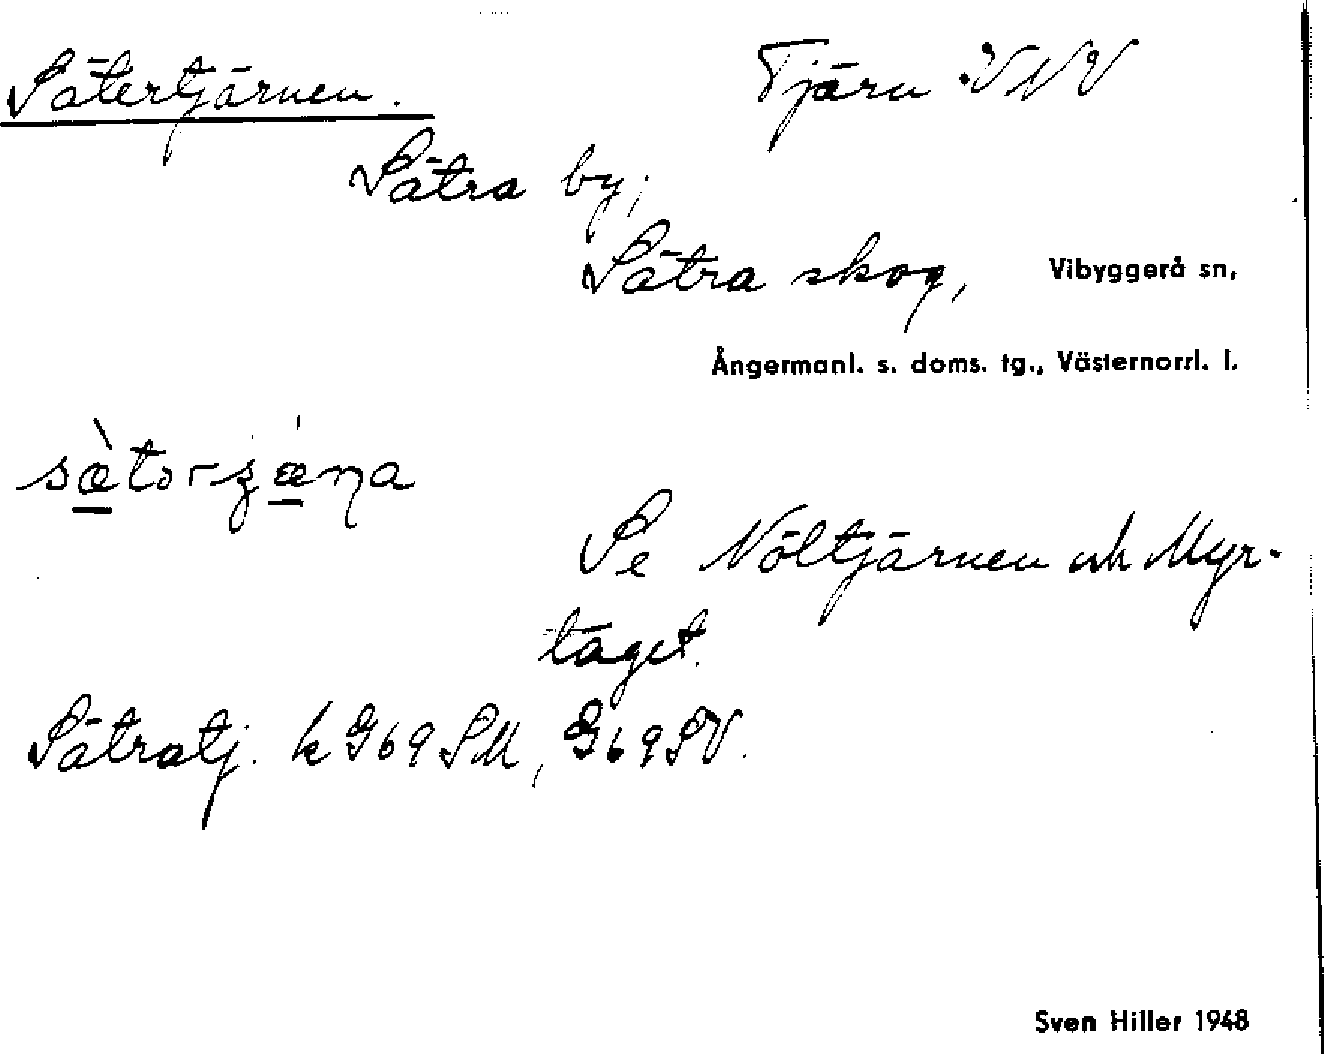 Sätertjärnen.
Tjärn VNV
Sätra by,
Sätra skog,
Vibyggerå sn,
Ångermanl. s. doms. tg., Västernorrl. l.
Se Nöltjärnen och Myr-
taget.
Sätratj. k G69 SM, G69SV.
Sven Hiller 1948